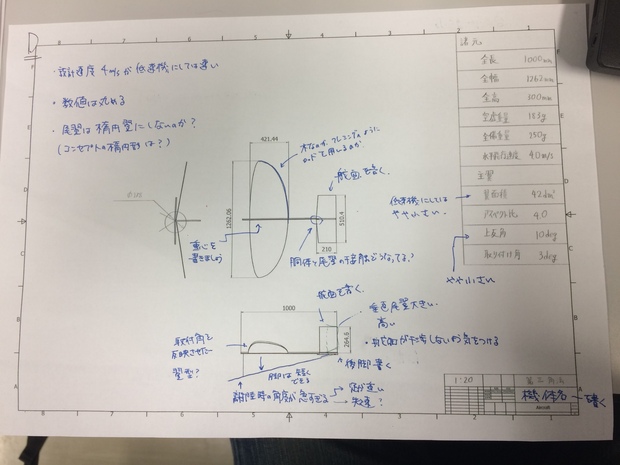 D
8 7 6 5 4 3 2 1
・設計速度 4m/sが低速機にしては速い
・数値は丸める
・尾翼は楕円翼にしないのか?
(コンセプトの楕円翼は?)
諸元
全長 1000mm
全幅 1262mm
全高 300mm
全備重量 250g
水平飛行速度 4.0m/s
主翼
翼面積 42dm²
アスペクト比 4.0
上反角 10deg
取り付け角 3deg
421.44
1262.06
510.4
210
舵面を書く
低速機にしては
やや小さい
重心を
書きましょう
胴体と尾翼の接触どうなってる?
やや小さい
舵面を書く
1000
264.8
垂直尾翼大きい
高い
・舵面が干渉しないか気をつける
後脚書く
取付角を
反映させた
翼型?
脚は短く
できる
離陸時の角度が急すぎる
→足が速い
→失速?
1:20
第三角法
機体名
Aircraft
書く
8 7 6 5 4 3 2 1